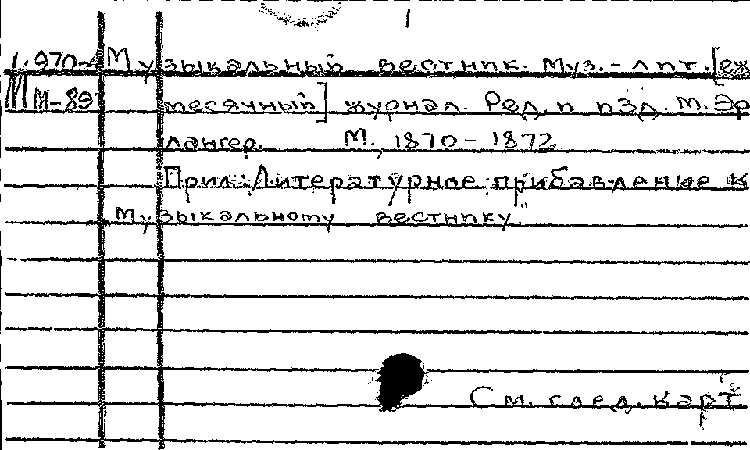 1
Музыкальный вестник. Муз.-лит. [еже
М-89 месячный] журнал. Ред. и изд. М. Эр
лангер. М., 1870-1872
Прил.: „Литературное прибавление к
Музыкальному вестнику"
См. след. карт.